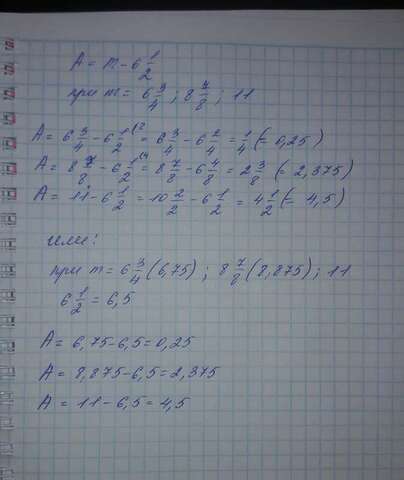 A = m - 6 1/2
при m = 6 3/4 ; 8 7/8 ; 11
A = 6 3/4 - 6 1/2 (2 = 6 3/4 - 6 2/4 = 1/4 (= 0,25)
A = 8 7/8 - 6 1/2 (4 = 8 7/8 - 6 4/8 = 2 3/8 (= 2,375)
A = 11 - 6 1/2 = 10 2/2 - 6 1/2 = 4 1/2 (= 4,5)
или:
при m = 6 3/4 (6,75) ; 8 7/8 (8,875) ; 11
6 1/2 = 6,5
A = 6,75 - 6,5 = 0,25
A = 8,875 - 6,5 = 2,375
A = 11 - 6,5 = 4,5